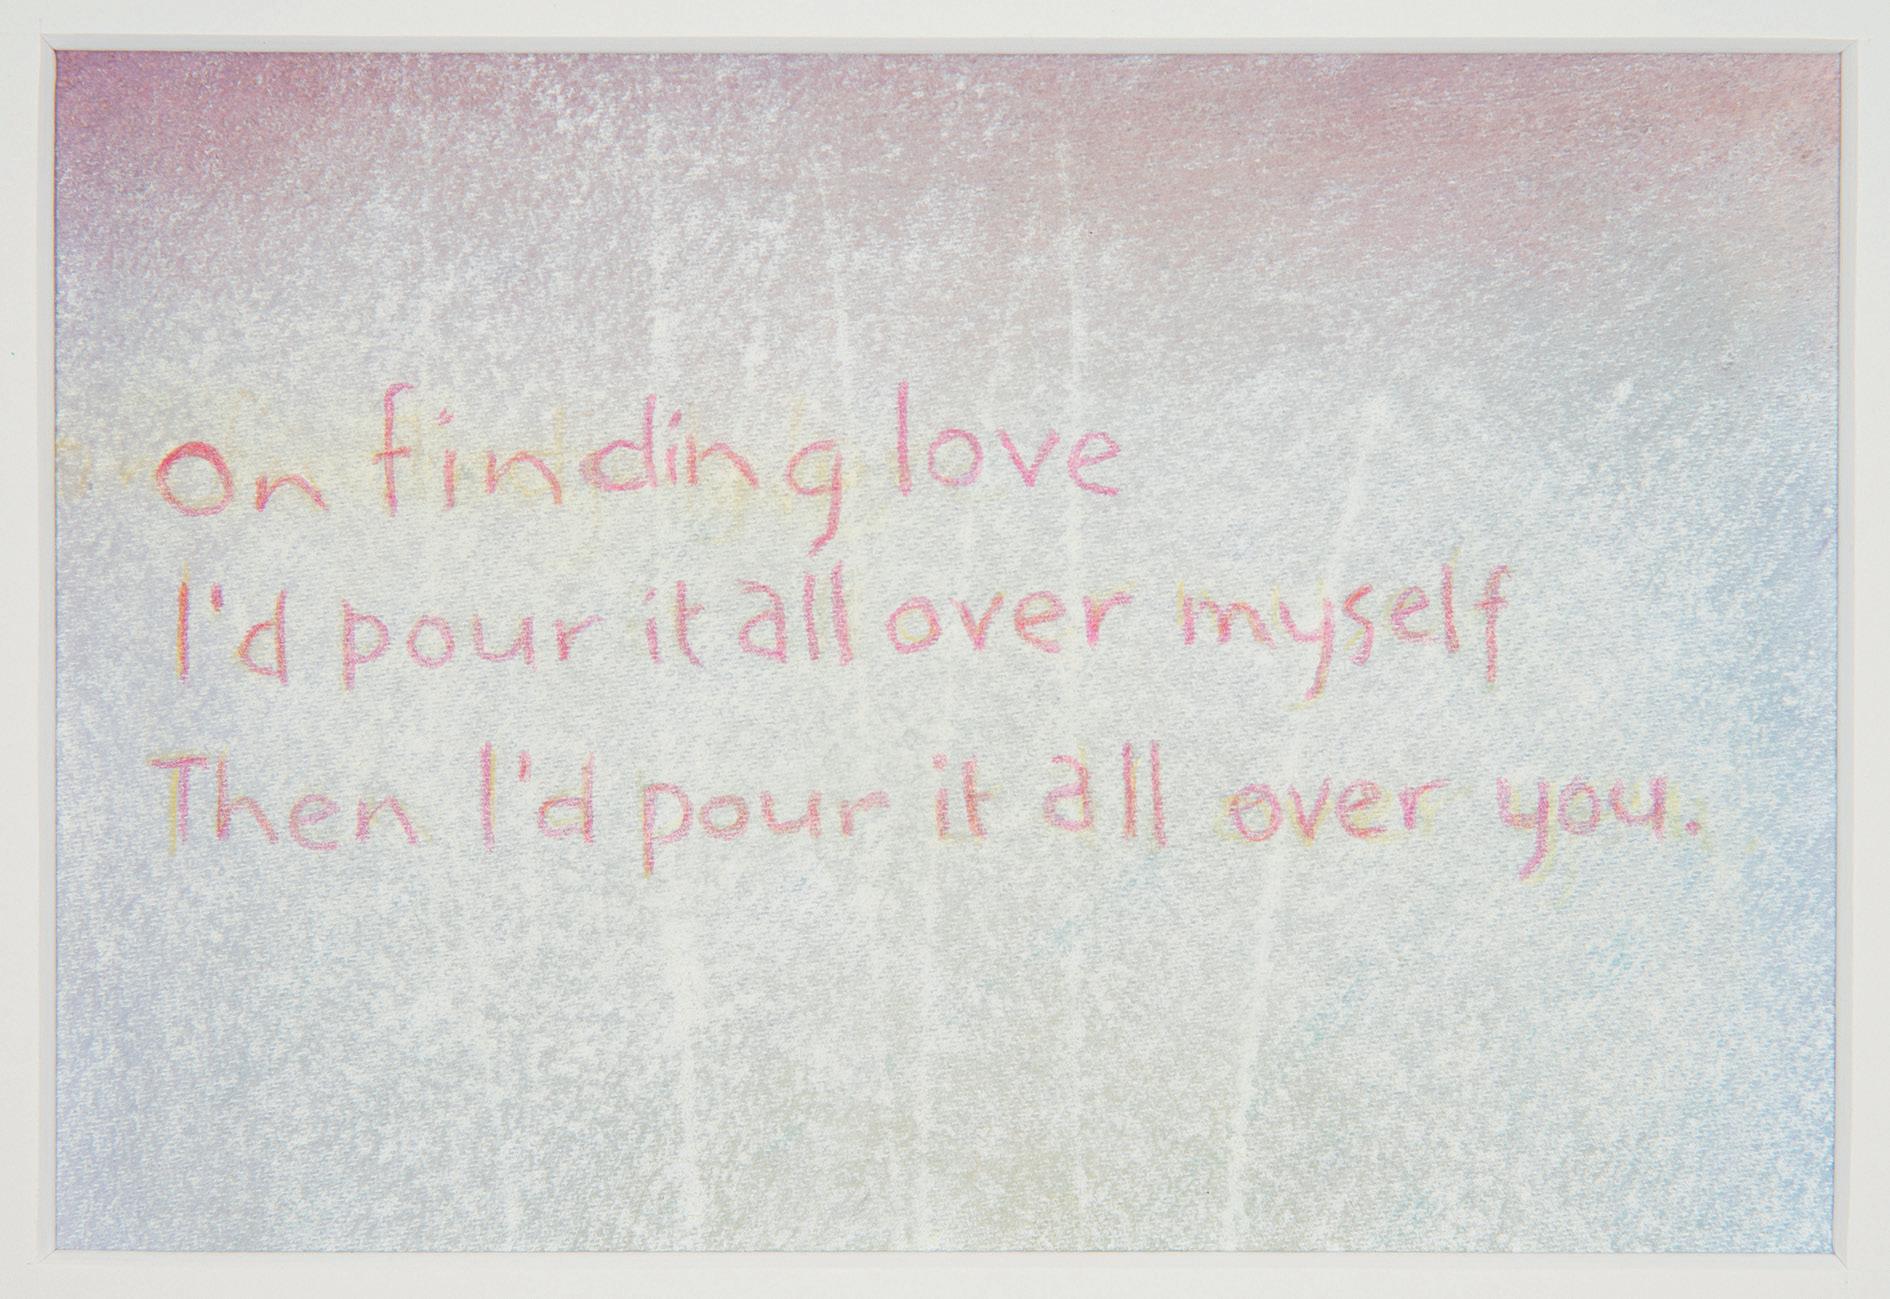 On finding love
I'd pour it all over myself
Then I'd pour it all over you.